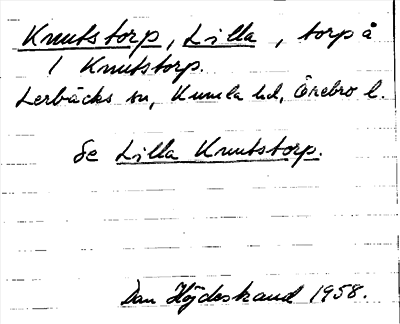 Knutstorp, Lilla, torp å
1 Knutstorp.
Lerbäcks sn, Kumla hd, Örebro l.
Se Lilla Knutstorp.
Dan Höjdestrand 1958.